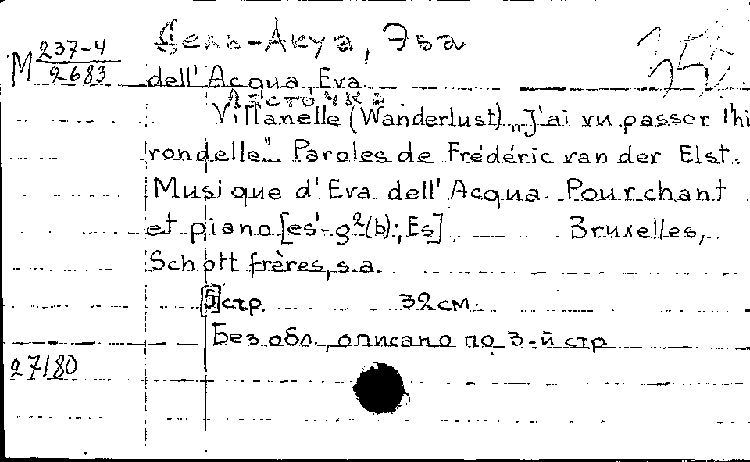 Дель-Акуа, Эва
М 237-4
2683
dell' Acqua, Eva
Ласточка
Villanelle (Wanderlust) „J'ai vu passer l'hi
rondelle". Paroles de Frédéric van der Elst.
Musique d'Eva dell'Acqua. Pour chant
et piano [es¹-g²(b); Es] Bruxelles,
Schott frères, s.a.
[5] стр. 32 см.
Без обл., описано по 3-й стр
27180